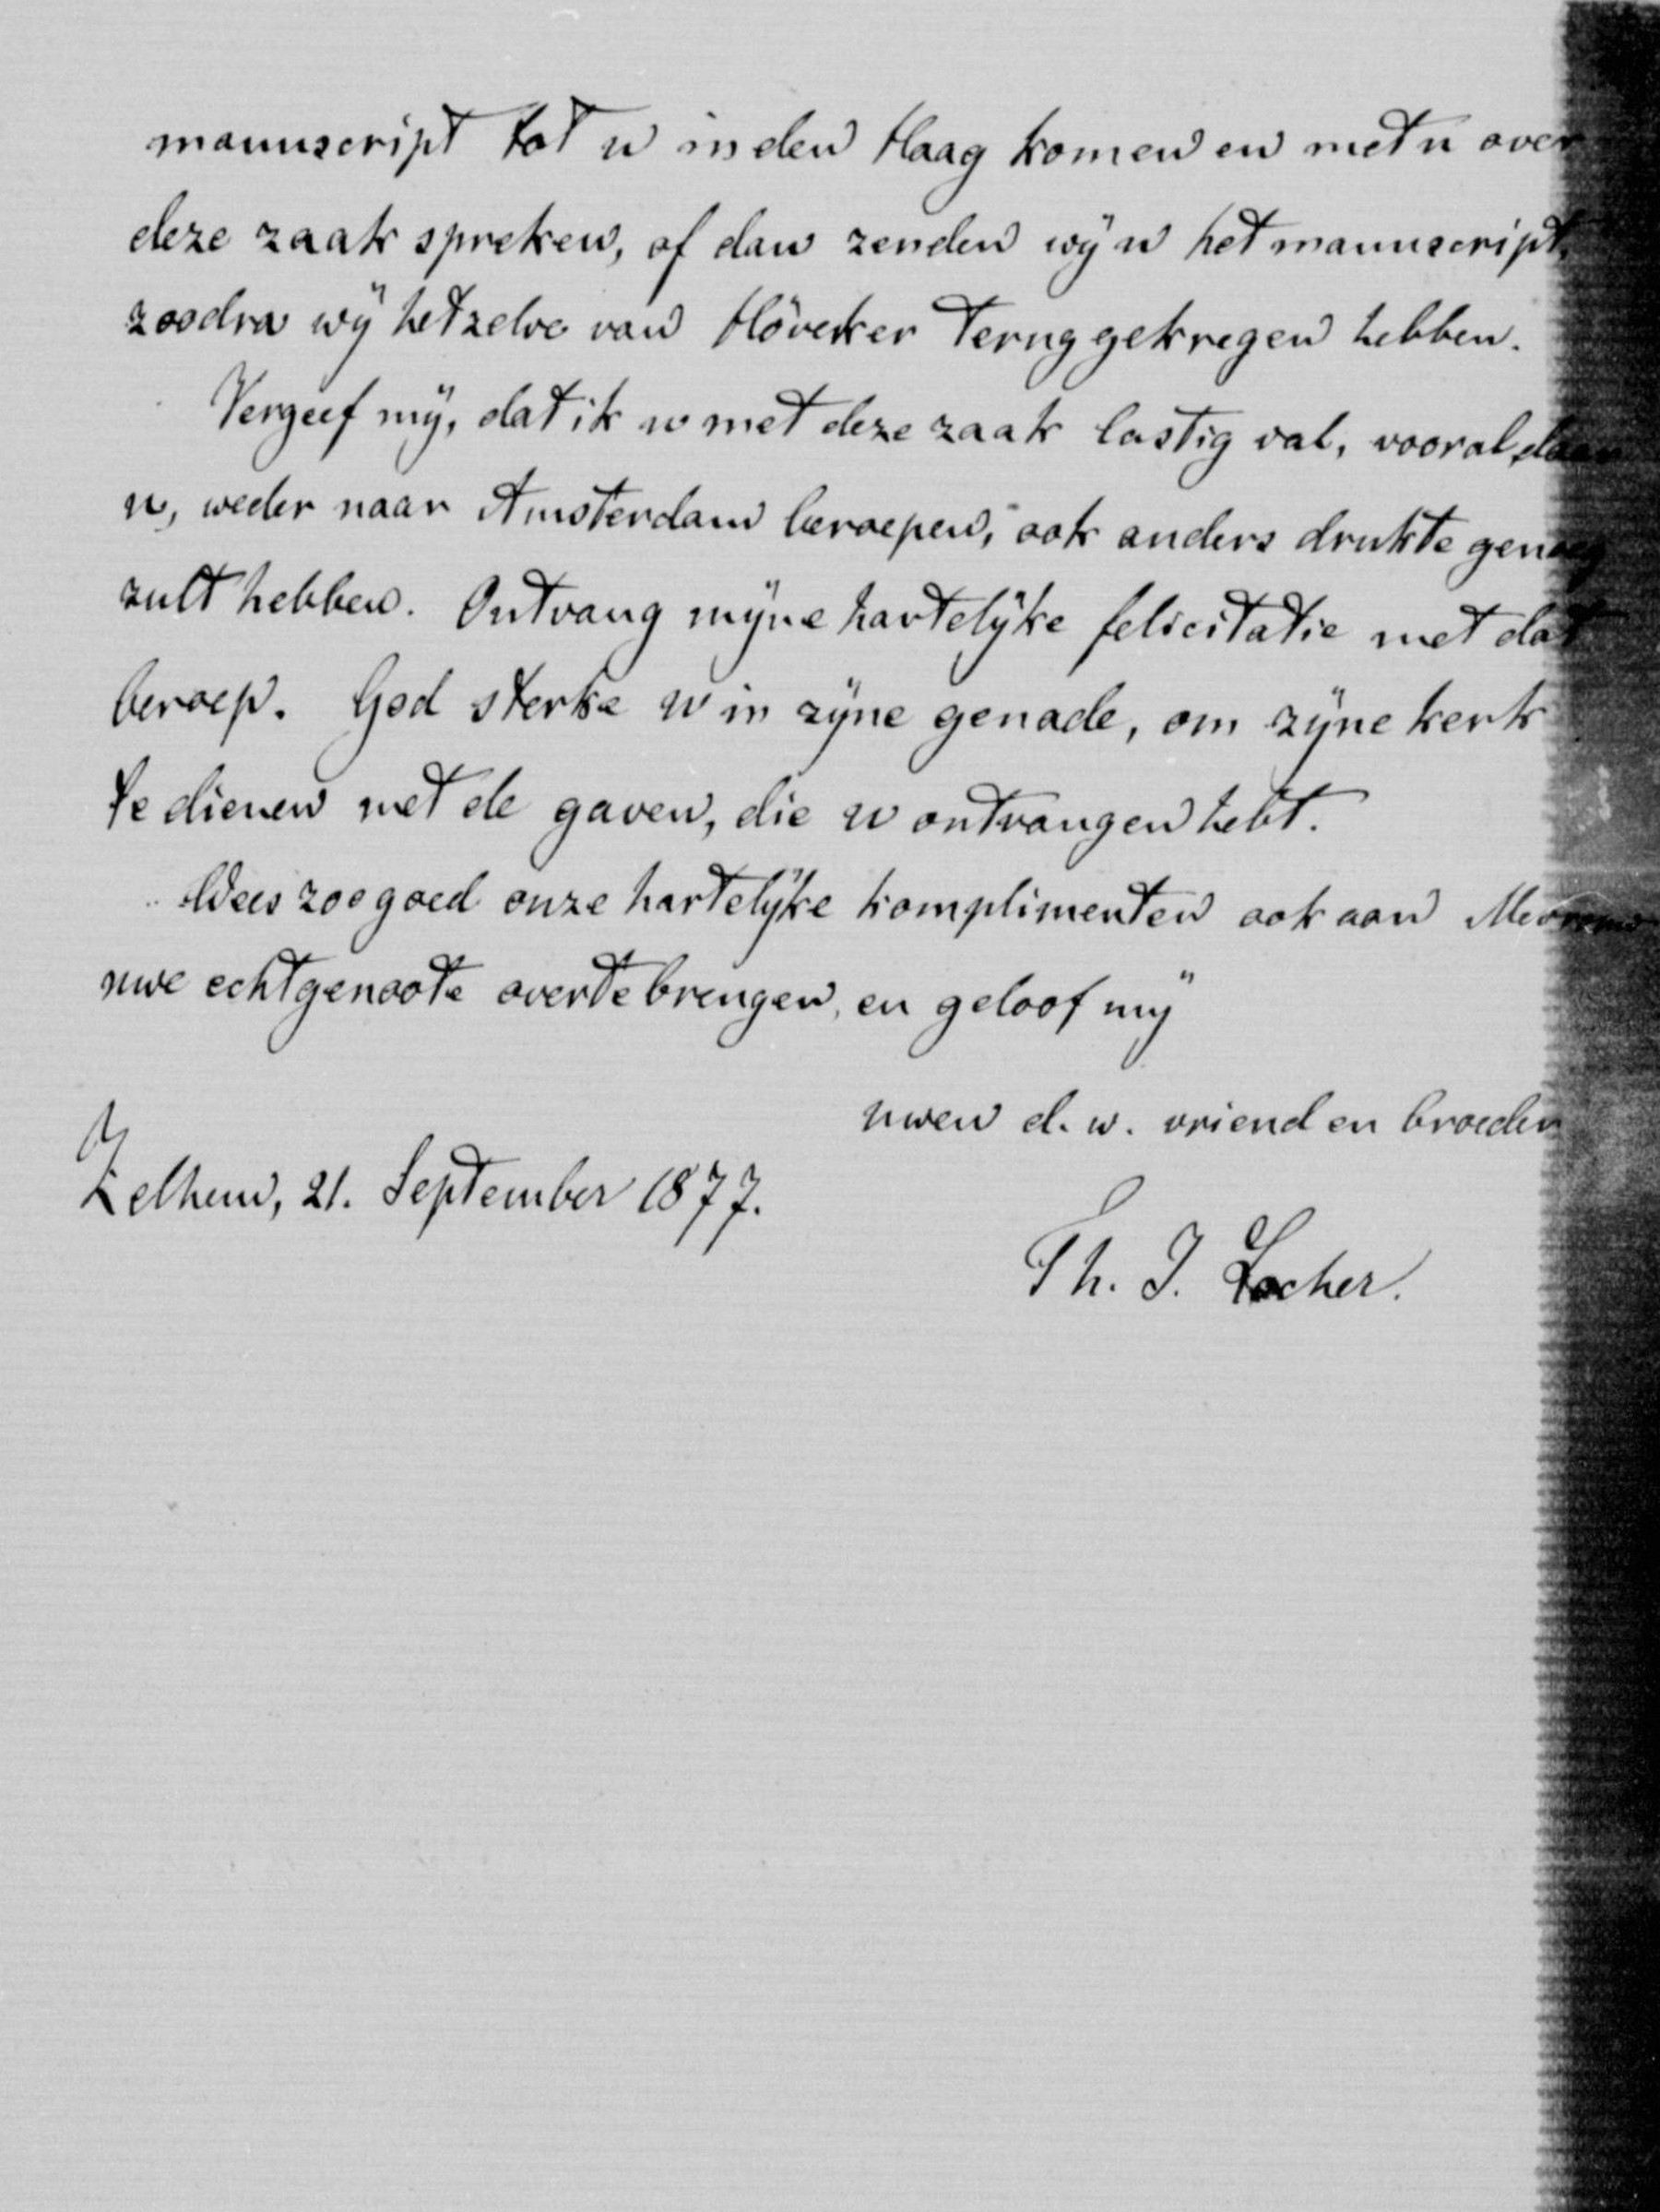 manuscript tot u in den Haag komen en met u over
deze zaak spreken, of dan zenden wÿ u het manuscript,
zoodra wÿ hetzelve van Höveker terug gekregen hebben.
Vergeef mÿ, dat ik u met deze zaak lastig val, vooral daar
u, weder naar Amsterdam beroepen, ook anders drukte genoeg
zult hebben. Ontvang mÿne hartelÿke felicitatie met dat
beroep. God sterke u in zÿne genade, om zÿne kerk
te dienen met de gaven, die u ontvangen hebt.
Wees zoo goed onze hartelÿke komplimenten ook aan Mevrouw
uwe echtgenoote overtebrengen, en geloof mÿ
uwen d. w. vriend en broeder
Zelhem, 21. September 1877.
Th. J. Locher.